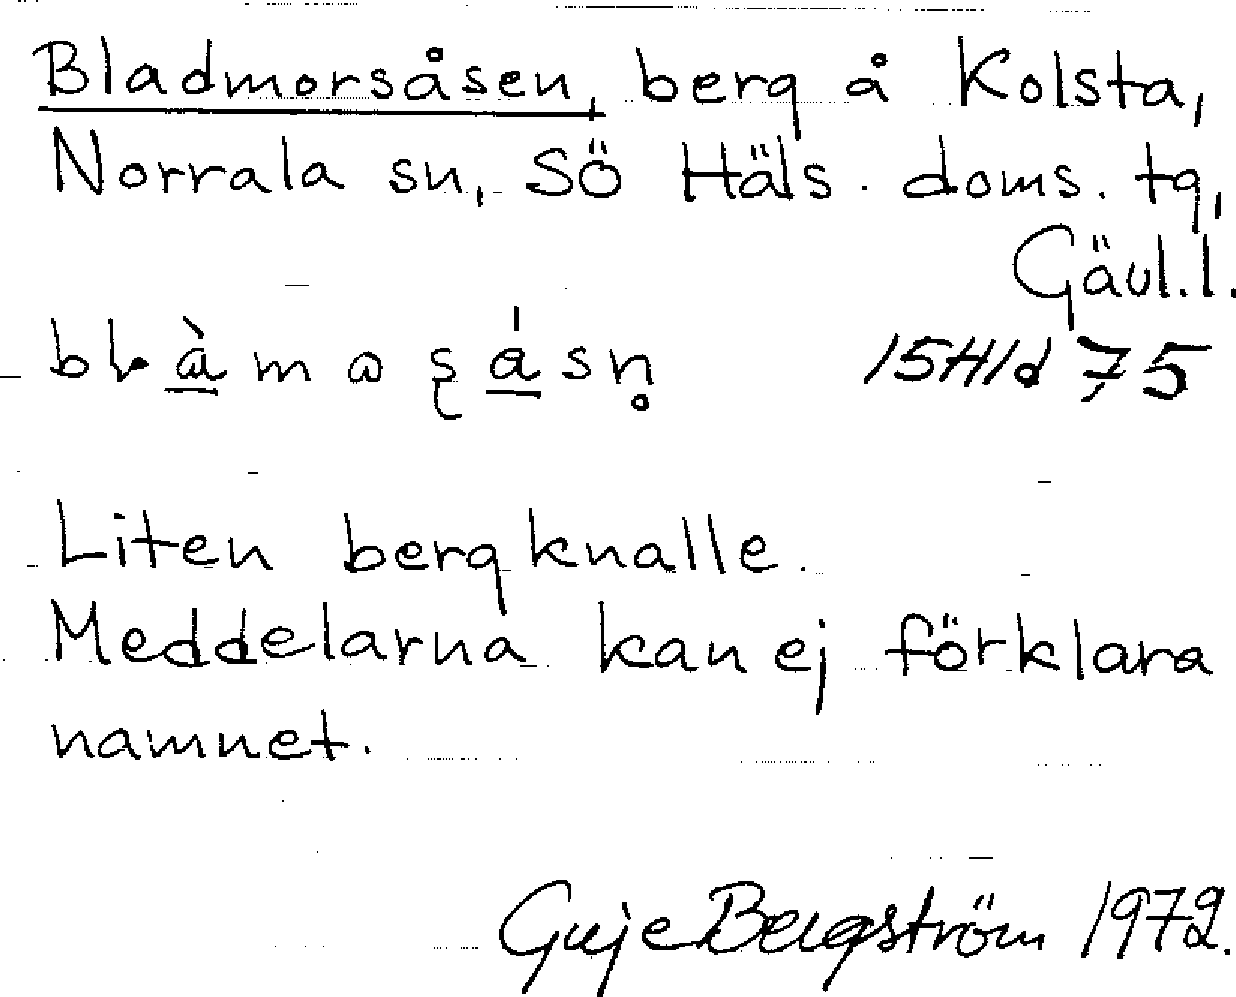 Bladmorsåsen, berg å Kolsta,
Norrala sn, Sö Häls. doms. tg,
Gävl.l.
15H1d 75
Liten bergknalle.
Meddelarna kan ej förklara
namnet.
Guje Bergström 1972.